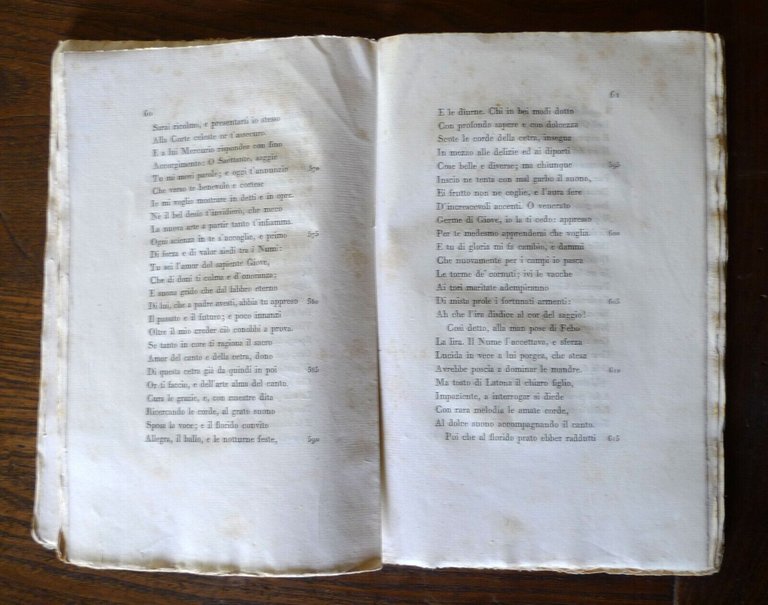 60
Sarai ricolmo, e presentarti io stesso
Alla Corte celeste or t'assecuro.
E a lui Mercurio risponder con fino
Accorgimento: O Saettante, saggie
Tu mi movi parole; e oggi t'annunzio 570
Che verso te benevolo e cortese
Io mi voglio mostrare in detti e in opre.
Nè il bel desio t'invidierò, che meco
La nuova arte a partir tanto t'infiamma.
Ogni scienza in te s'accoglie, e primo 575
Di forza e di valor siedi tra i Numi:
Tu sei l'amor del sapiente Giove,
Che di doni ti colma e d'onoranze;
E suona grido che dal labbro eterno
Di lui, che a padre avesti, abbia tu appreso 580
Il passato e il futuro; e poco innanzi
Oltre il mio creder ciò conobbi a prova.
Se tanto in core ti ragiona il sacro
Amor del canto e della cetra, dono
Di questa cetra già da quindi in poi 585
Or ti faccio, e dell'arte alma del canto.
Cura le grazie, e, con maestre dita
Ricercando le corde, al grato suono
Sposa la voce; e il florido convito
Allegra, il ballo, e le notturne feste, 590
61
E le diurne. Chi in bei modi dotto
Con profondo sapere e con dolcezza
Scote le corde della cetra, insegna
In mezzo alle delizie ed ai diporti
Cose belle e diverse; ma chiunque 595
Inscio ne tenta con mal garbo il suono,
Ei frutto non ne coglie, e l'aura fere
D'increscevoli accenti. O venerato
Germe di Giove, io la ti cedo: appresso
Per te medesmo apprenderai che voglia. 600
E tu di gloria mi fa cambio, e dammi
Che nuovamente per i campi io pasca
Le torme de' cornuti; ivi le vacche
Ai tori maritate adempiranno
Di mista prole i fortunati armenti: 605
Ah che l'ira disdice al cor del saggio!
Così detto, alla man pose di Febo
La lira. Il Nume l'accettava, e sferza
Lucida in vece a lui porgea, che stesa
Avrebbe poscia a dominar le mandre. 610
Ma tosto di Latona il chiaro figlio,
Impaziente, a interrogar si diede
Con rara melodia le amate corde,
Al dolce suono accompagnando il canto.
Poi che al florido prato ebber raddutti 615